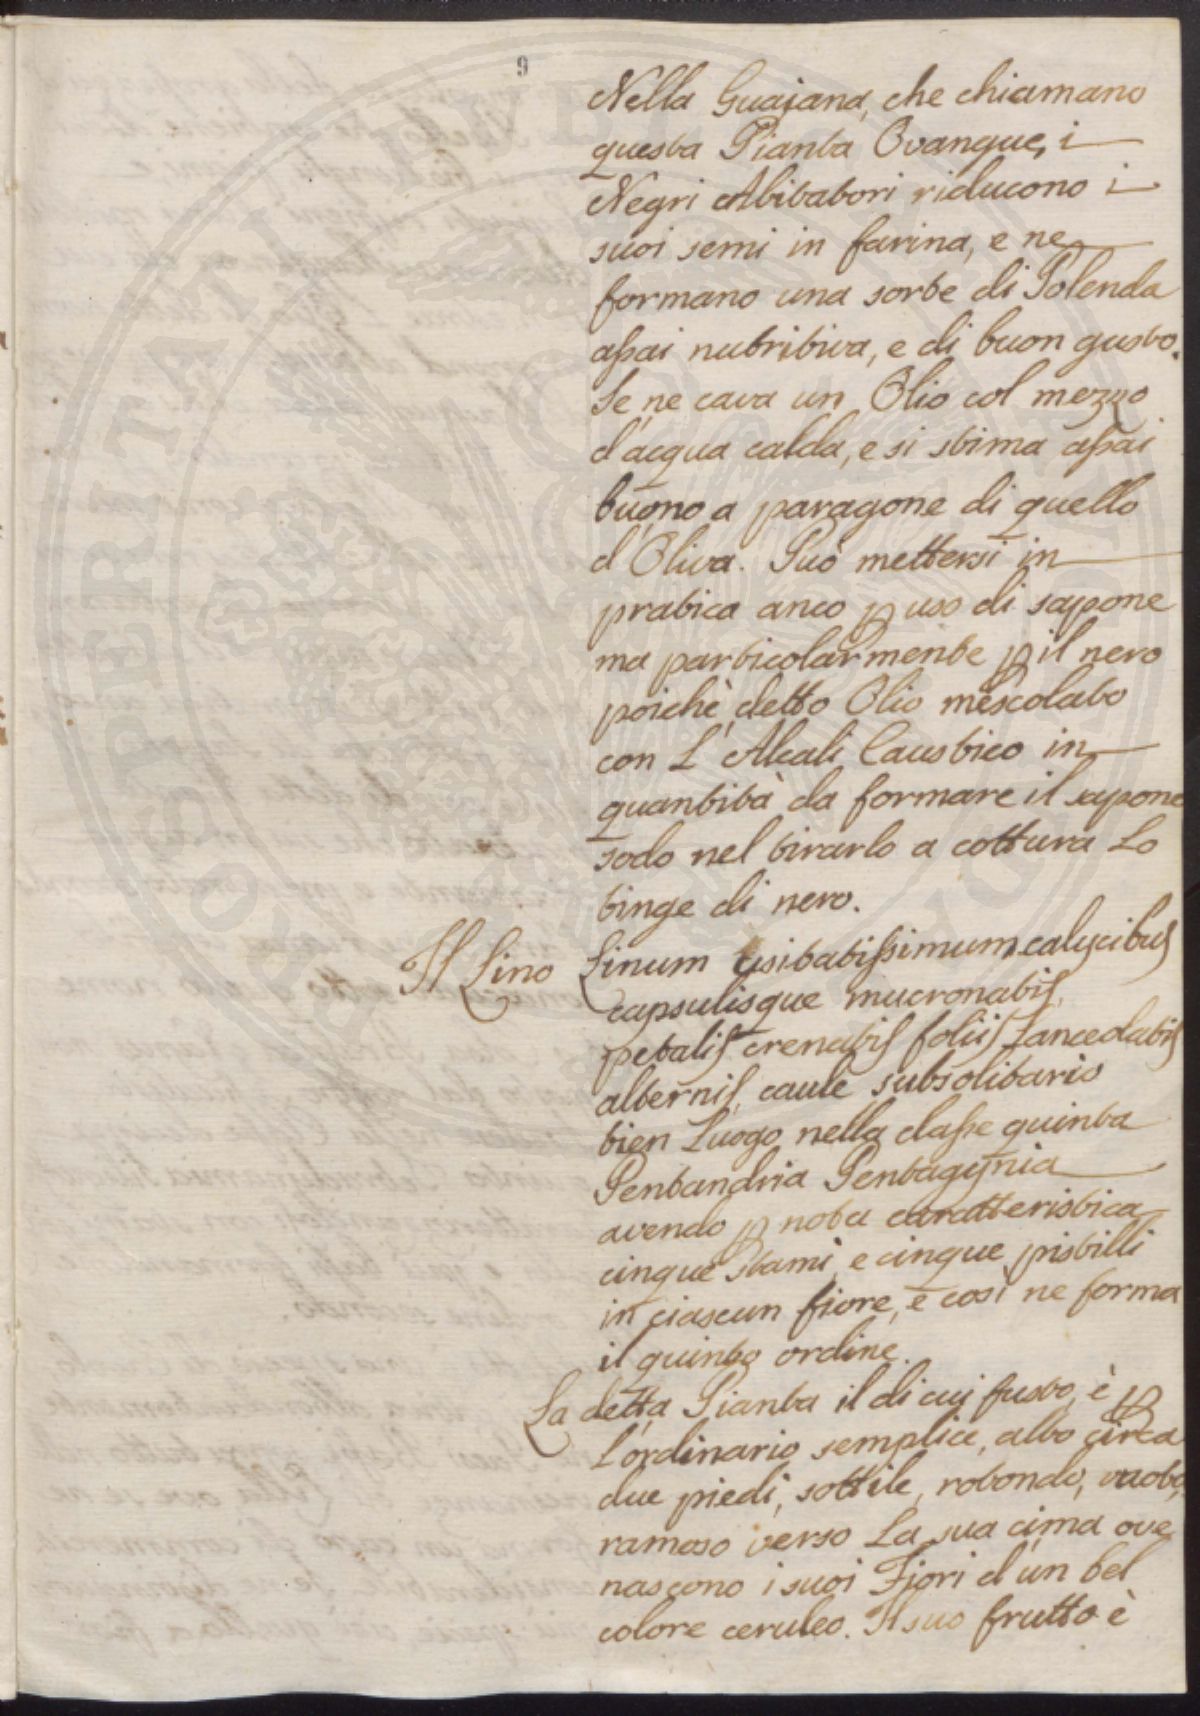 9
Nella Guajana, che chiamano
questa Pianta Ovangue, i
Negri Abitatori riducono i
suoi semi in farina, e ne
formano una sorte di Polenda
aſsai nutritiva, e di buon gusto.
Se ne cava un Olio col mezzo
d'acqua calda, e si stima aſsai
buono a paragone di quello
d'Oliva. Può mettersi in
pratica anco ꝑ uso di sapone
ma particolarmente ꝑ il nero
poichè detto Olio mescolato
con L'Alcali Caustico in
quantità da formare il sapone
sodo nel tirarlo a cottura Lo
tinge di nero.
Il Lino Linum usitatiſsimum calycibus
capsulisque mucronatis,
petalis crenatis foliis Lanceolatis
alternis, caule subsolitario
tien Luogo nella claſse quinta
Pentandria Pentagynia
avendo ꝑ nota caratteristica
cinque stami, e cinque pistilli
in ciascun fiore, e così ne forma
il quinto ordine.
La detta Pianta il di cui fusto, è ꝑ
L'ordinario semplice, alto circa
due piedi, sottile, rotondo, vuoto,
ramoso verso La sua cima ove
nascono i suoi Fiori d'un bel
colore ceruleo. Il suo frutto è
PROSPERITATI PUBL